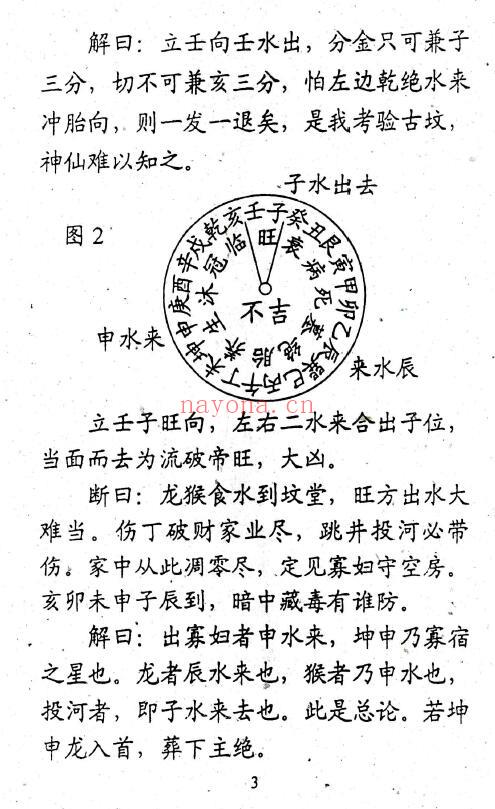 解曰：立壬向壬水出，分金只可兼子
三分，切不可兼亥三分，怕左边乾绝水来
冲胎向，则一发一退矣，是我考验古坟，
神仙难以知之。
子水出去
图2
壬子癸丑艮寅甲卯乙辰巽巳丙午丁未坤申庚酉辛戌乾亥
旺衰病死墓绝胎养生沐冠临
不吉
申水来
来水辰
nayona.cn
立壬子旺向，左右二水来合出子位，
当面而去为流破帝旺，大凶。
断曰：龙猴食水到坟堂，旺方出水大
难当。伤丁破财家业尽，跳井投河必带
伤。家中从此凋零尽，定见寡妇守空房。
亥卯未申子辰到，暗中藏毒有谁防。
解曰：出寡妇者申水来，坤申乃寡宿
之星也。龙者辰水来也，猴者乃申水也，
投河者，即子水来去也。此是总论。若坤
申龙入首，葬下主绝。
3